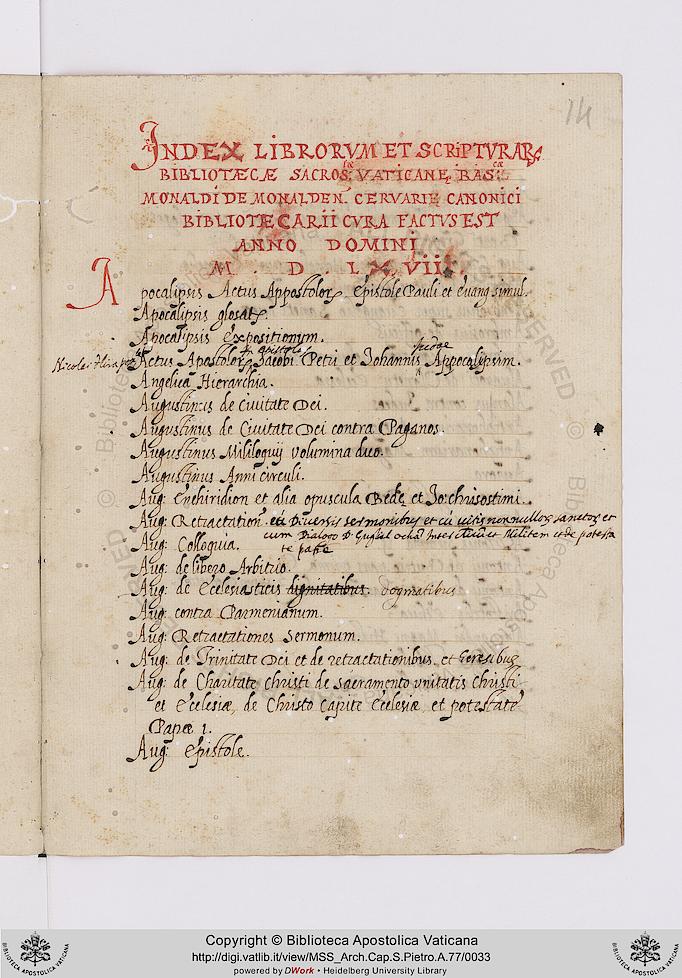 14
INDEX LIBRORVM ET SCRIPTVRARꝜ
BIBLIOTÆCÆ SACROSᶠᵃᵉ VATICANĘ BASᶜᵃᵉ
MONALDI DE MONALDEN. CERVARIE CANONICI
BIBLIOTECARII CVRA FACTVS EST
ANNO DOMINI
M . D . LX, VIII
Apocalipsis Actus Appostoloꝝ Epistole Pauli et Euang. simul.
Apocalipsis glosatę.
Apocalipsis expositionum.
et epistole Iudae
Nicolai
Actus Apostoloꝝ Jacobi Petri et Johannis Appocalipsim.
Angelica Hierarchia.
Augustinus de Ciuitate Dei.
Augustinus de Ciuitate Dei contra Paganos.
Augustinus Mililoquij volumina duo.
Augustinus Anni circuli.
Aug: Enchiridion et alia opuscula Bedę et Jo: chrisostimi.
Aug: Retractation. et Diuersis sermonibus et cū uitis nonnulloꝝ sanctoꝝ et
cum Dialogo D. Guglel ochā Inter Clericū et Militem et de potesta
te papę
Aug: Colloquia.
Aug: de libero Arbitrio.
Aug: de Ecclesiasticis dignitatibus. dogmatibus
Aug: contra Parmenianum.
Aug: Retractationes Sermonum.
Aug: de Trinitate Dei et de retractationibus et heresibus
Aug: de Charitate Christi de sacramento vnitatis Christi
et Ecclesiæ, de Christo Capite Ecclesiæ, et potestate
Papæ 1.
Aug: Epistole.
Copyright © Biblioteca Apostolica Vaticana
http://digi.vatlib.it/view/MSS_Arch.Cap.S.Pietro.A.77/0033
powered by DWork • Heidelberg University Library